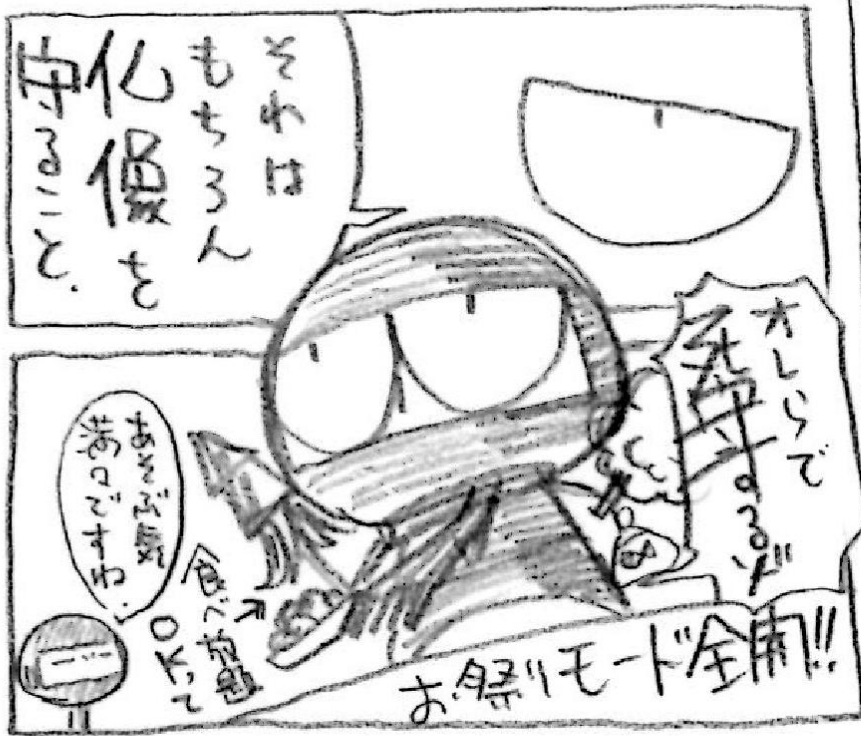 それは
もちろん
仏像を
守ること.
オレらで
死守するゾ
あそぶ気
満々ですね.
食べ放題
OKって
お祭りモード全開!!